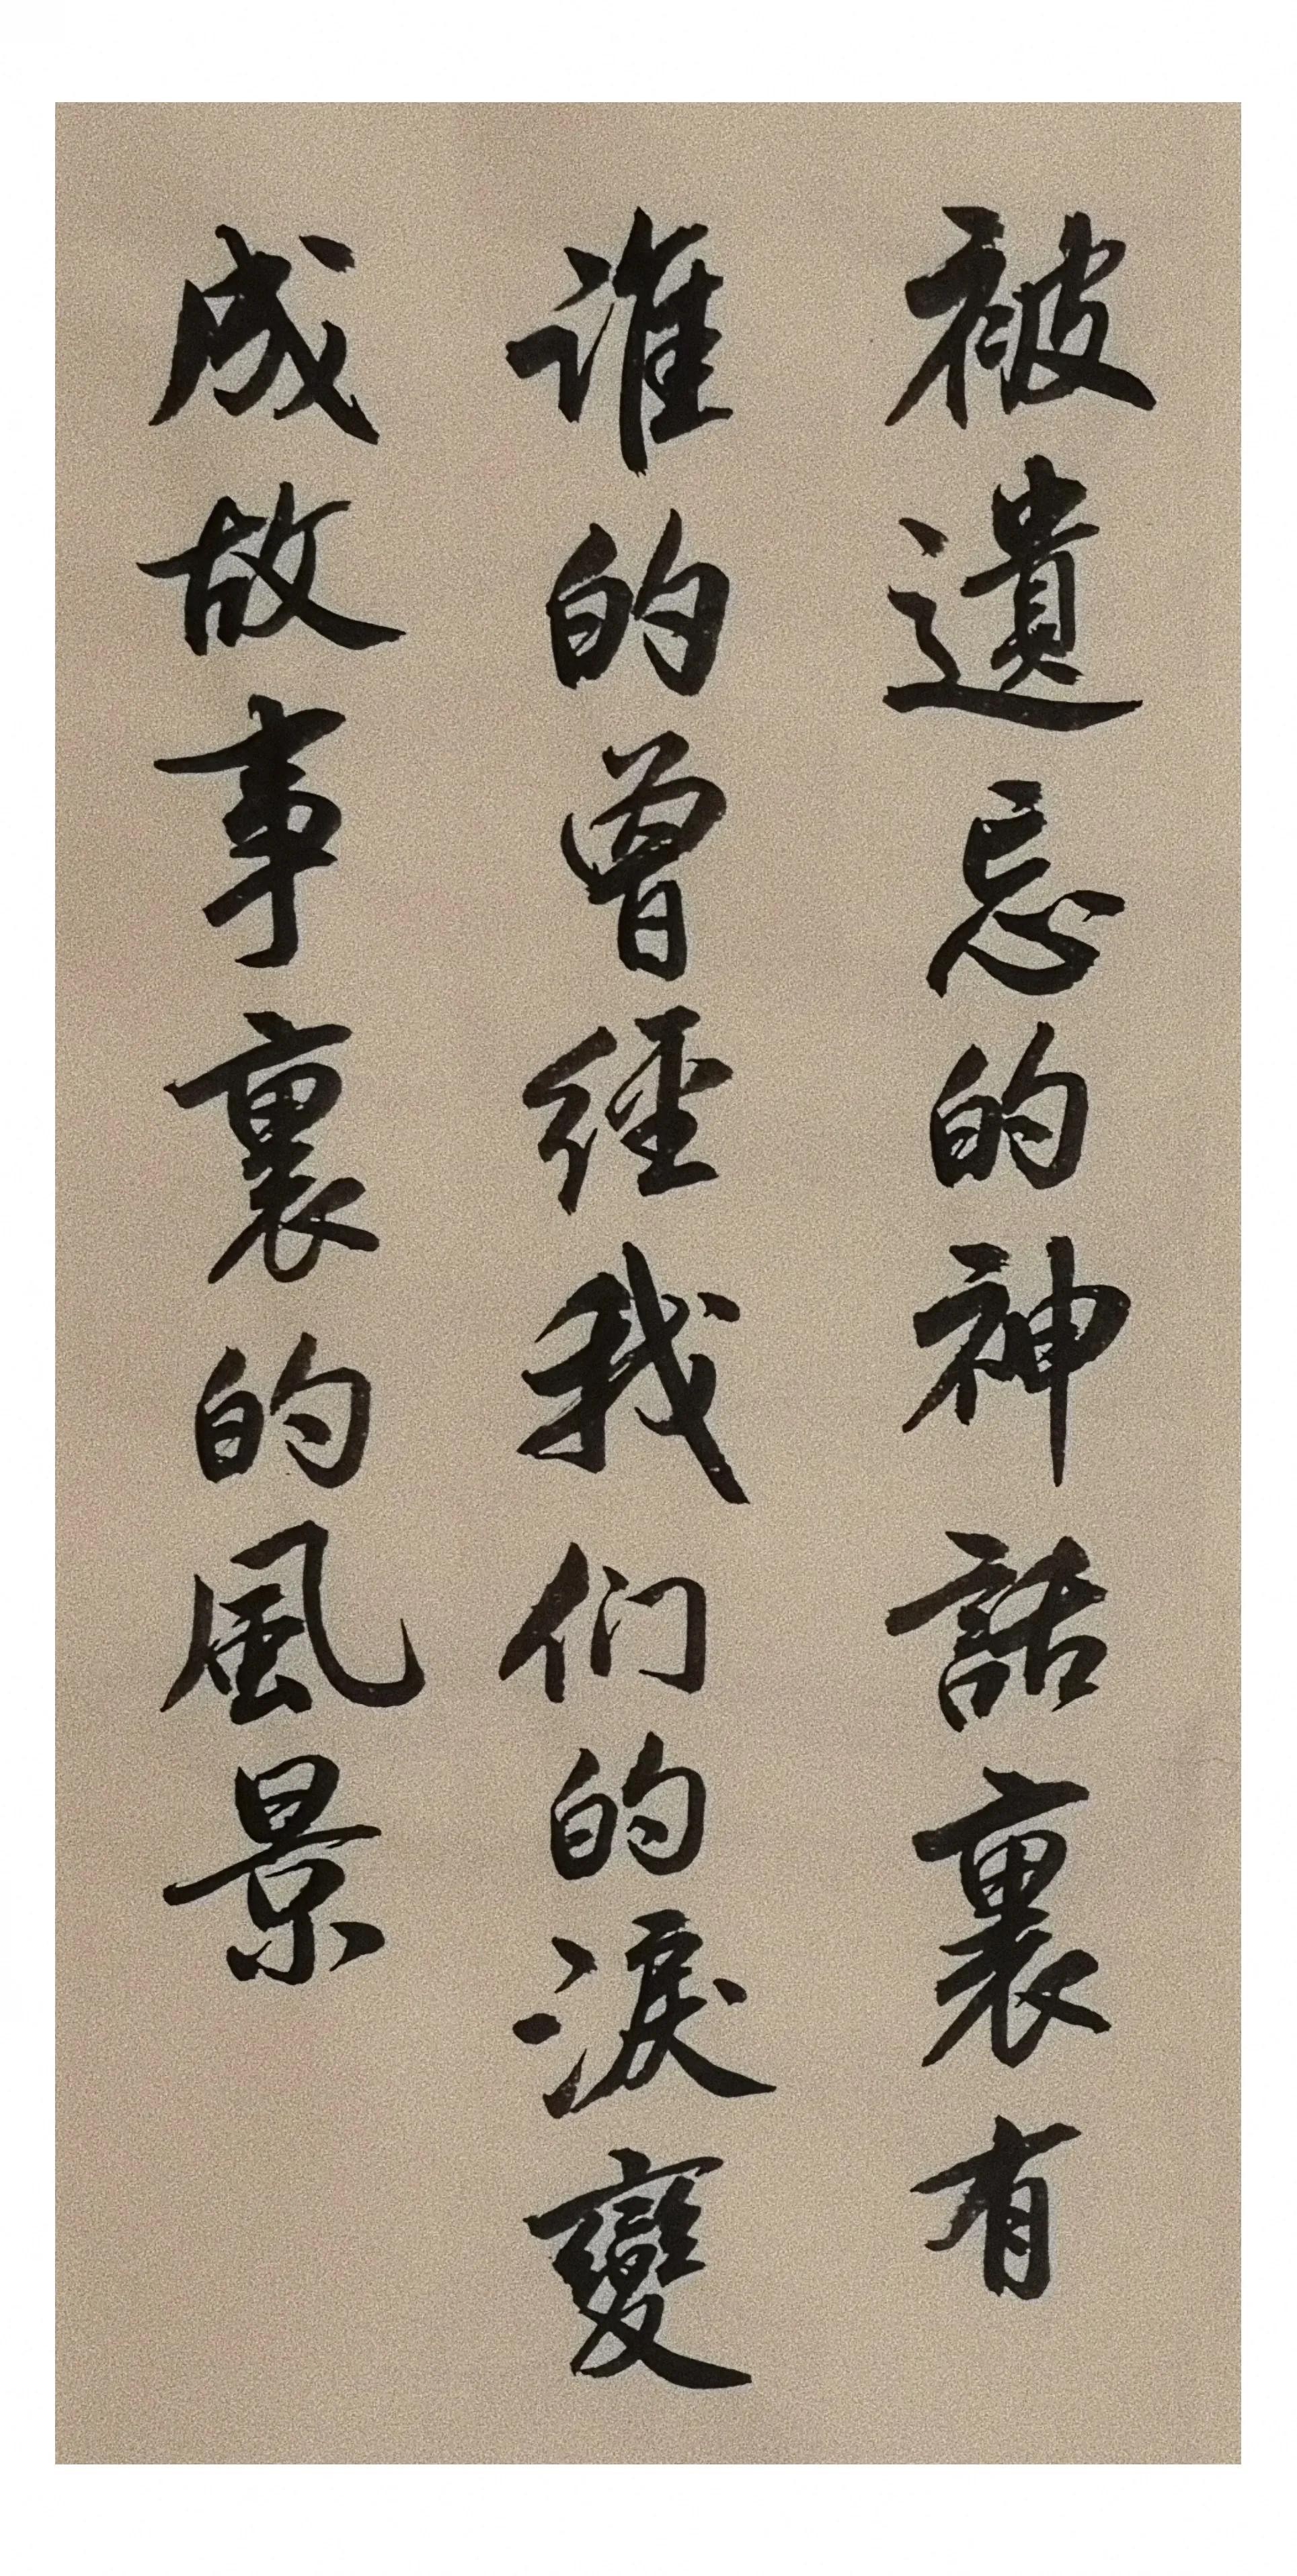 被遺忘的神話裏有
谁的曾經我们的淚變
成故事裏的風景